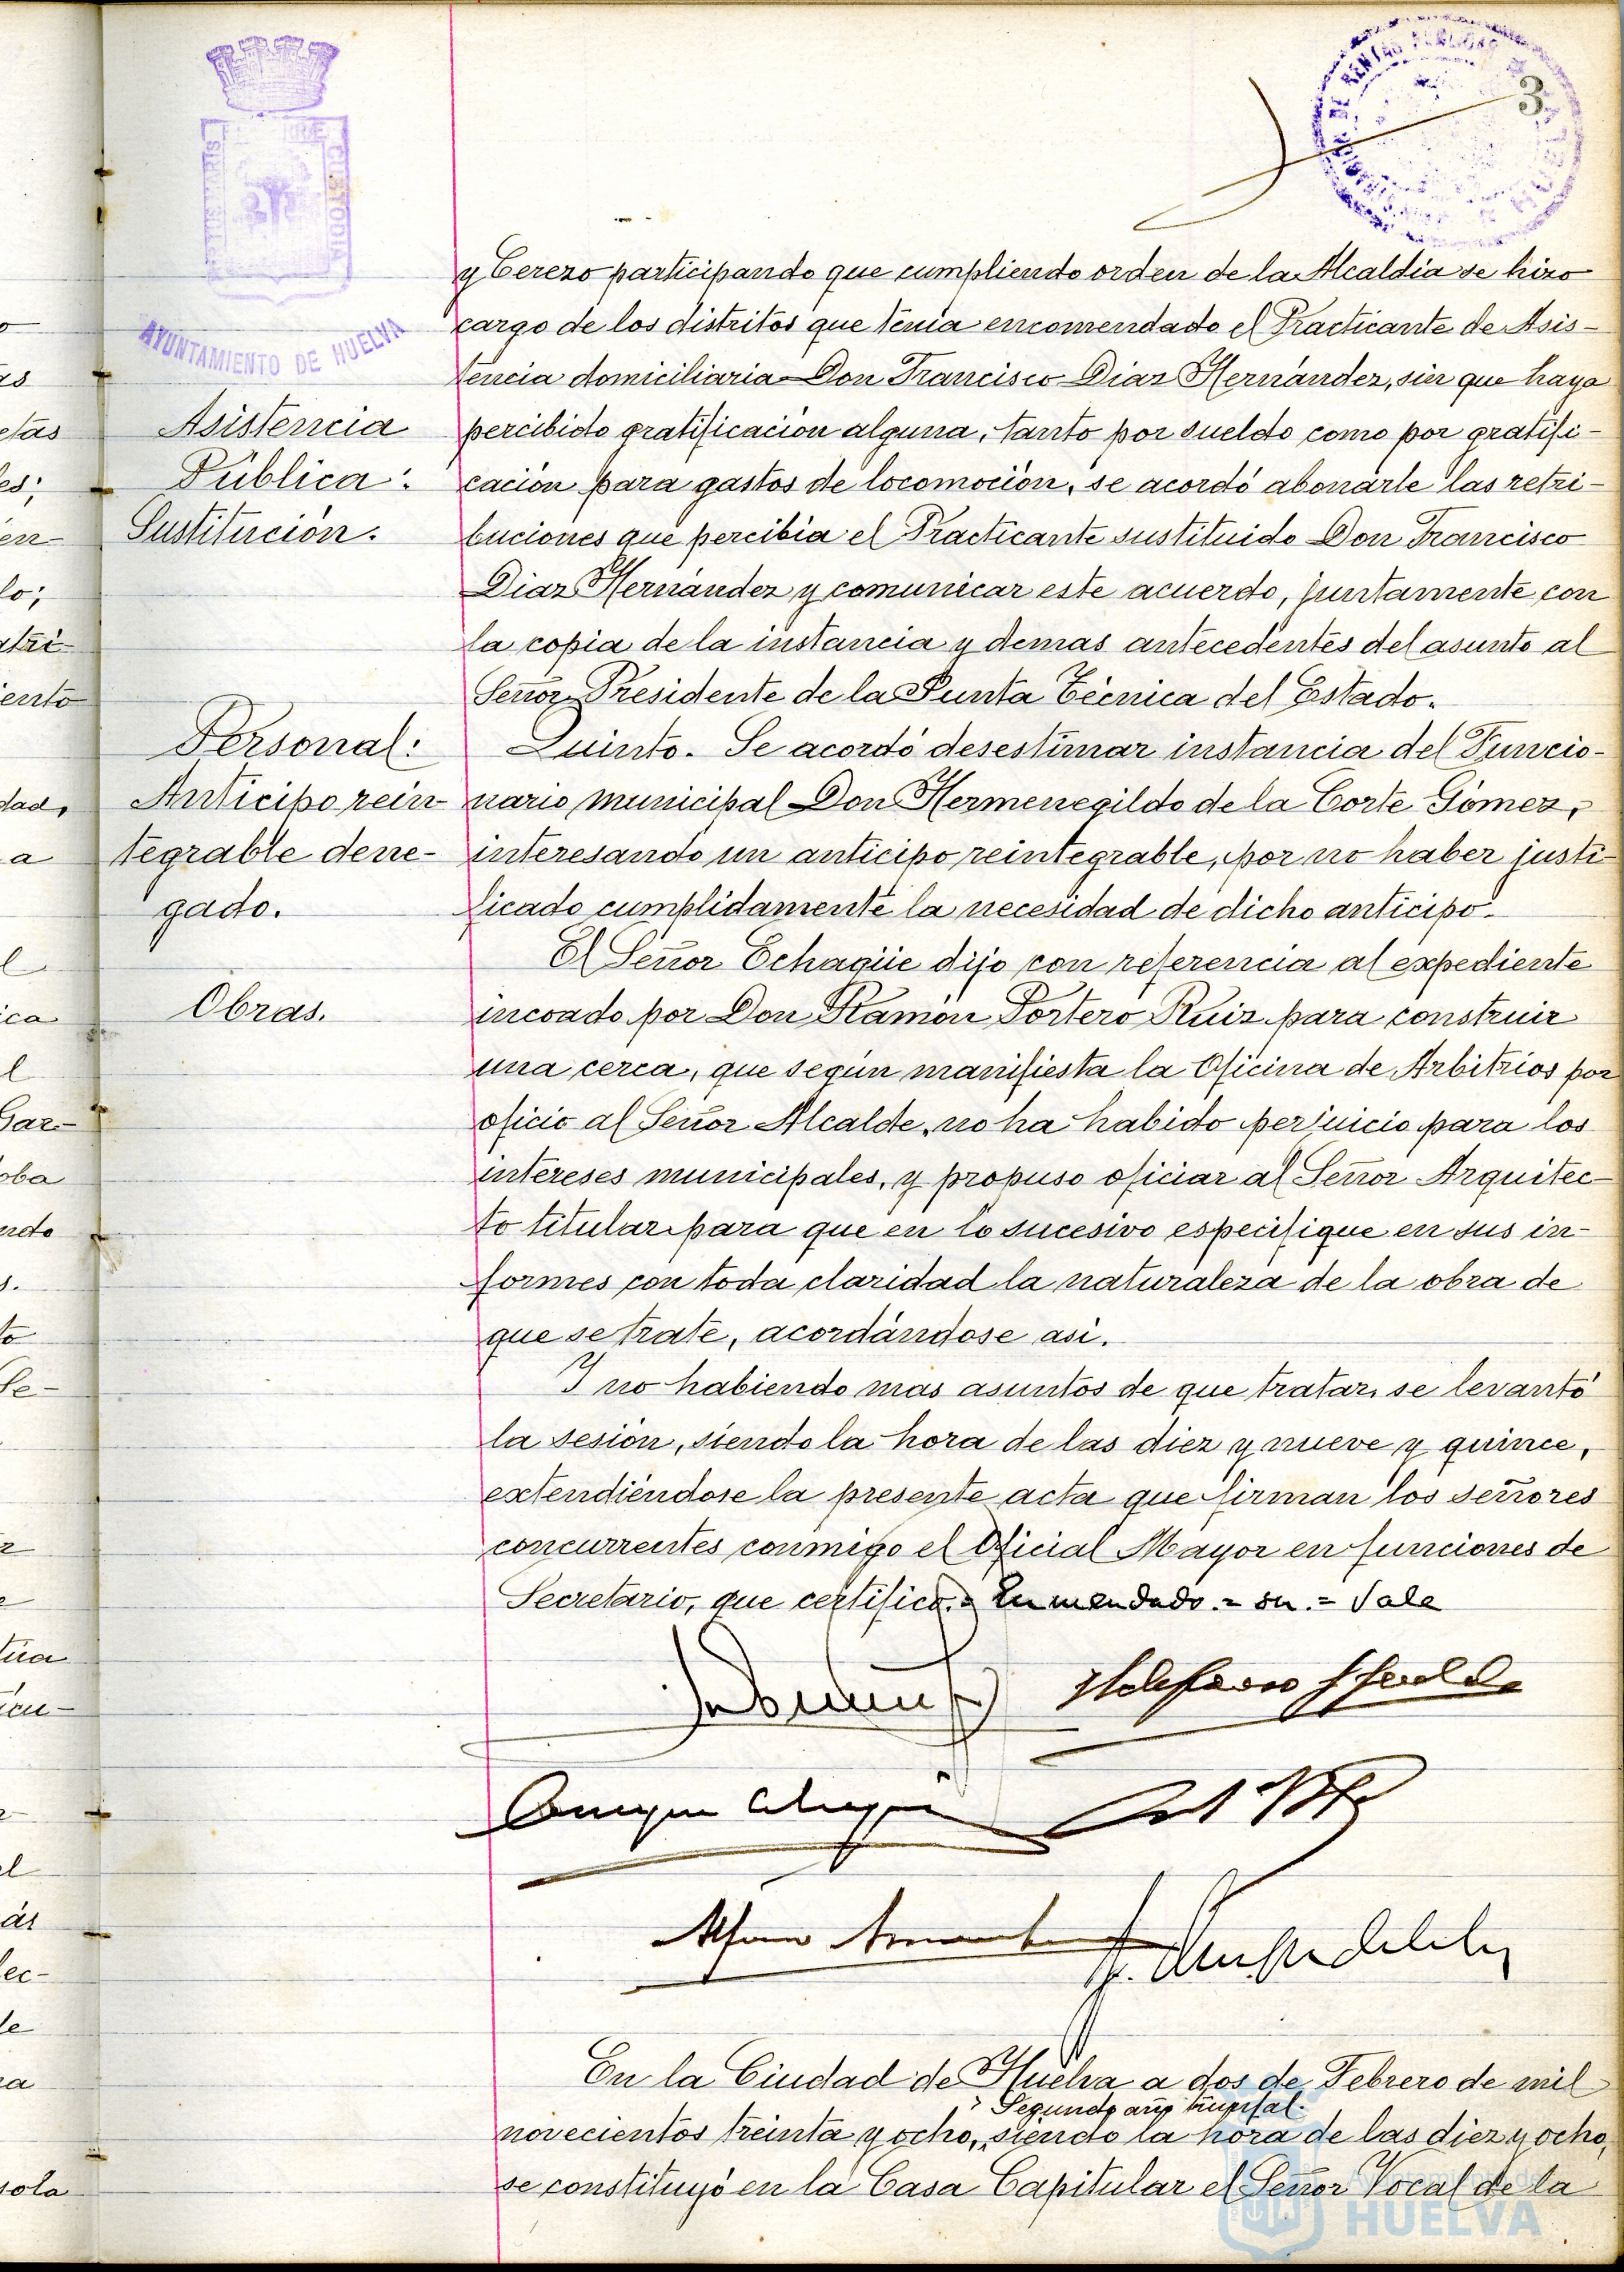 3
AYUNTAMIENTO DE HUELVA
y Cerezo participando que cumpliendo orden de la Alcaldia se hizo
cargo de los distritos que tenia encomendado el Practicante de Asis-
tencia domiciliaria Don Francisco Diaz Hernández, sin que haya
Asistencia
percibido gratificación alguna, tanto por sueldo como por gratifi-
Pública:
cación para gastos de locomoción, se acordó abonarle las retri-
Sustitución.
buciones que percibia el Practicante sustituido Don Francisco
Diaz Hernández y comunicar este acuerdo, juntamente con
la copia de la instancia y demas antecedentes del asunto al
Señor Presidente de la Junta Técnica del Estado.
Personal:
Quinto. Se acordó desestimar instancia del Funcio-
Anticipo rein-
nario municipal Don Hermenegildo de la Corte Gómez,
tegrable dene-
interesando un anticipo reintegrable, por no haber justi-
gado.
ficado cumplidamente la necesidad de dicho anticipo.
El Señor Echagüe dijo con referencia al expediente
Obras.
incoado por Don Ramón Portero Ruiz para construir
una cerca, que según manifiesta la Oficina de Arbitrios por
oficio al Señor Alcalde, no ha habido perjuicio para los
intereses municipales, y propuso oficiar al Señor Arquitec-
to titular para que en lo sucesivo especifique en sus in-
formes con toda claridad la naturaleza de la obra de
que se trate, acordándose asi.
Y no habiendo mas asuntos de que tratar, se levantó
la sesión, siendo la hora de las diez y nueve y quince,
extendiéndose la presente acta que firman los señores
concurrentes conmigo el Oficial Mayor en funciones de
Secretario, que certifico. = Enmendado. = on. = Vale
En la Ciudad de Huelva a dos de Febrero de mil
Segundo año triunfal.
novecientos treinta y ocho, siendo la hora de las diez y ocho,
se constituyó en la Casa Capitular el Señor Vocal de la
Ayuntamiento de
HUELVA